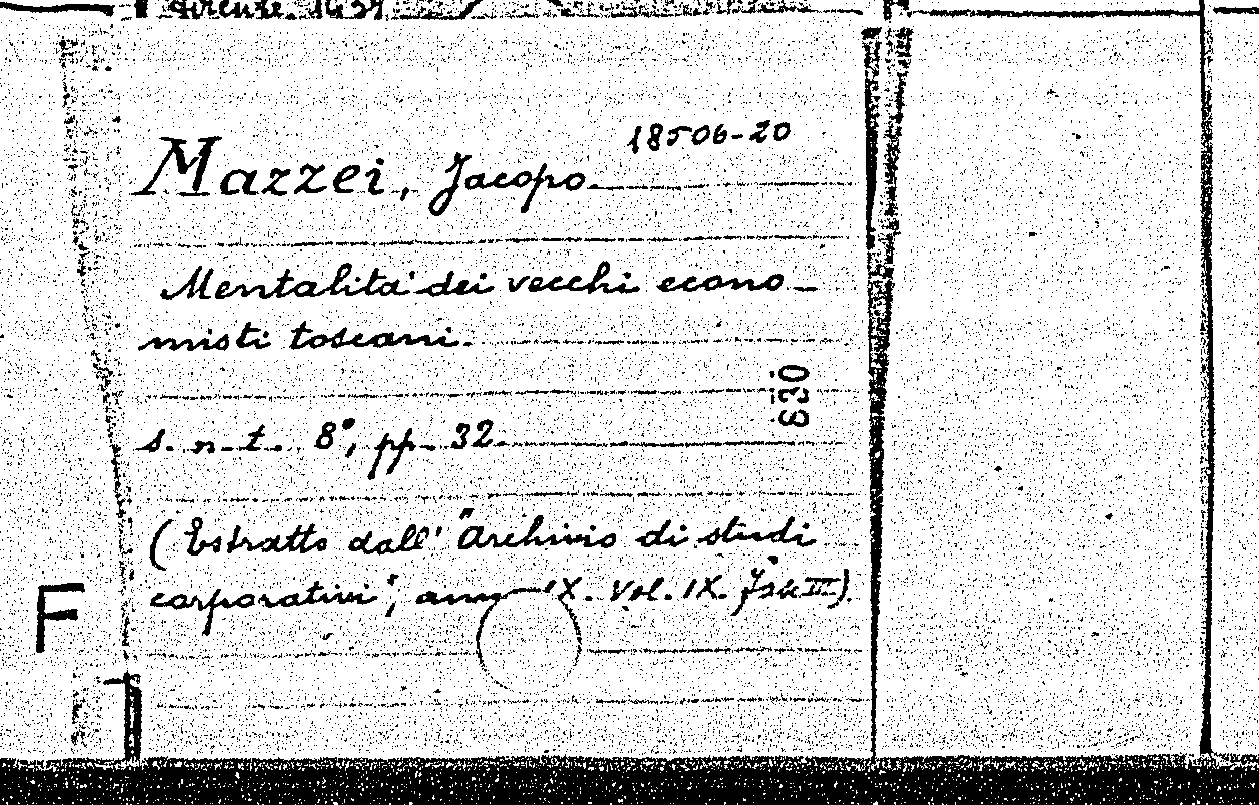 Firenze. 1937
18506-20
Mazzei, Jacopo.
Mentalità dei vecchi econo-
misti toscani.
830
s. n. t. 8°, pp. 32.
(Estratto dall' "Archivio di studi
corporativi", IX. Vol. IX. Fsc III).
F